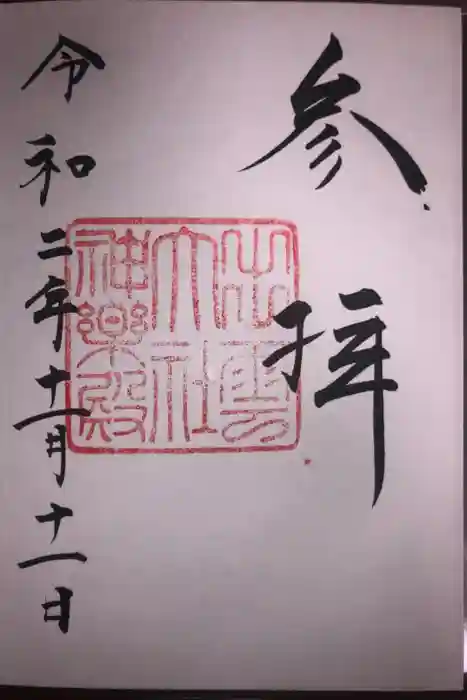 参拝
出雲
大社
神楽殿
令和二年十一月十一日